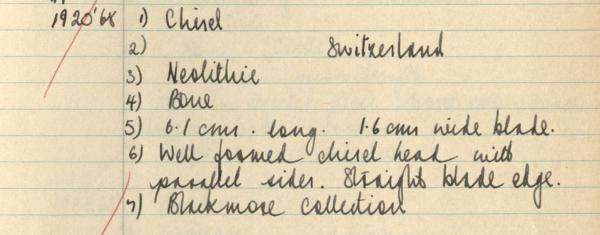 1920'68 1) Chisel
2) Switzerland
3) Neolithic
4) Bone
5) 6.1 cms. long. 1.6 cms wide blade.
6) Well formed chisel head with
parallel sides. Straight blade edge.
7) Blackmore Collection